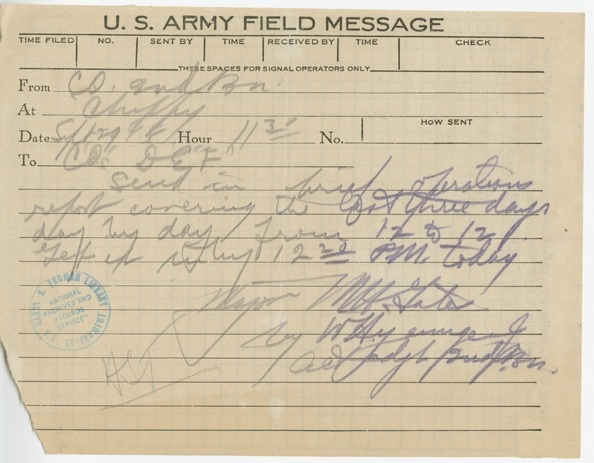 U. S. ARMY FIELD MESSAGE
TIME FILED NO. SENT BY TIME RECEIVED BY TIME CHECK
THESE SPACES FOR SIGNAL OPERATORS ONLY
From C.O. 2nd Bn.
At Cheppy
HOW SENT
Date 9/29/18 Hour 11 30 No.
To C.O.'s D E F
Send in brief operations
report covering the last three days
day by day from 12 to 12.
Get it in by 12 PM. today
Major M.H. Gates
by
Adjt 2nd Bn.
HARRY S. TRUMAN LIBRARY
NATIONAL ARCHIVES AND RECORDS SERVICE
U.S. GOVERNMENT